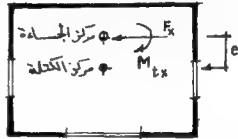 مركز الجساءة Fx
Mtx e
مركز الكتلة